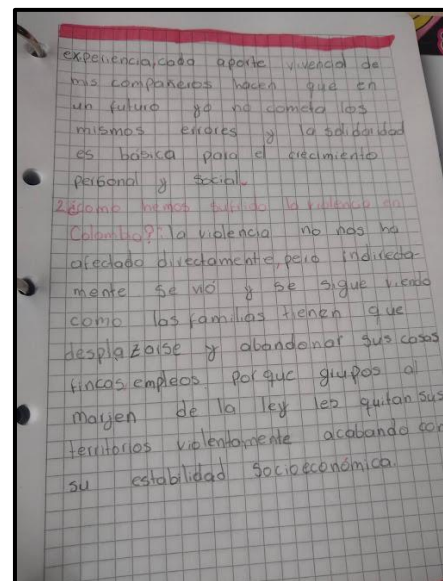 experiencia, cada aporte vivencial de
mis compañeros hacen que en
un futuro yo no cometa los
mismos errores y la solidaridad
es básica para el crecimiento
personal y social.
2. ¿Como hemos sufrido la violencia en
Colombia? la violencia no nos ha
afectado directamente, pero indirecta-
mente se vió y se sigue viendo
como las familias tienen que
desplazarse y abandonar sus cosas
fincas, empleos. Porque grupos al
marjen de la ley les quitan sus
territorios violentamente acabando con
su estabilidad socioeconómica.